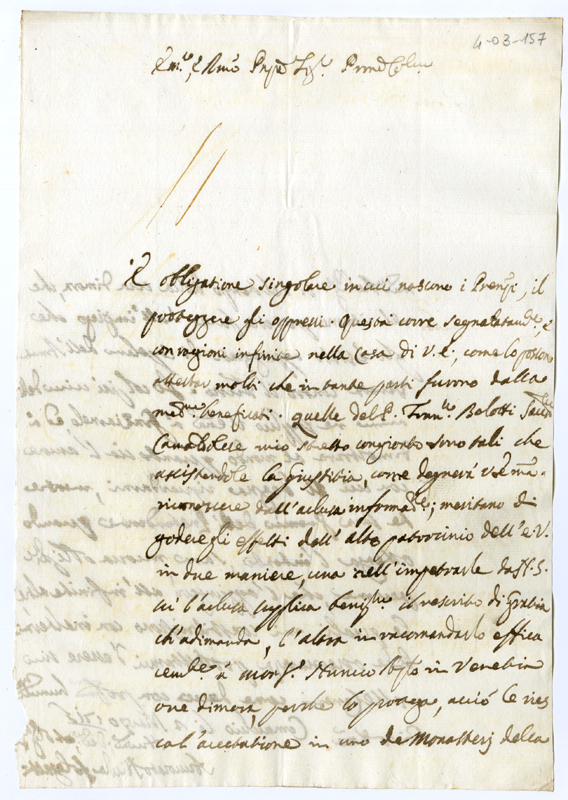 4-03-157
Em.mo, e Rmo Prpe Sig.r Prone Colmo
È obligatione singolare in cui nascono i Prencipi, il
proteggere gli oppressi. Questa corre segnalatam.te, e
con ragioni infinite nella Casa di V. E., come lo possono
attestar molti che in tante parti furono dalla
med.ma beneficati. Quelle del P. Franc.o Belotti
Camaldolese mio stretto congionto sono tali che
assistendole la Giustitia, come degnerà V. Em.a
riconoscere dall'aclusa informat.e; meritano di
godere gli effetti dell'alto patrocinio dell'E. V.
in due maniere, una nell'impetrarle da N. S.
sù l'aclusa supplica benig.te il rescrito di Gratia
ch'adimanda, l'altra in racomandarlo effica
cem.te à Mons.r Nuncio Apto in Venetia
ove dimora, perche lo protega, acciò le ries
ca l'accetatione in uno de Monasterij della